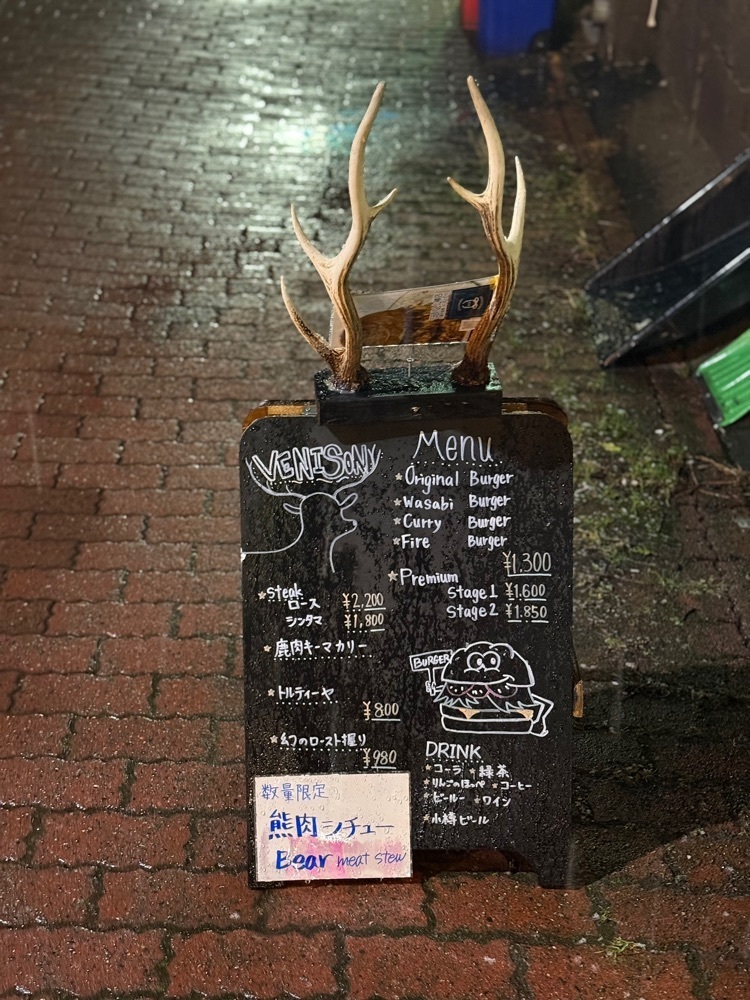 VENISON
★Steak
ロース ¥2,200
シンタマ ¥1,800
★鹿肉キーマカリー
★トルティーヤ
¥800
★幻のロースト握り
¥980
数量限定
熊肉シチュー
Bear meat stew
Menu
★Original Burger
★Wasabi Burger
★Curry Burger
★Fire Burger
¥1,300
★Premium
Stage1 ¥1,600
Stage2 ¥1,850
BURGER
DRINK
★コーラ ★緑茶
★りんごのほっぺ ★コーヒー
★ビール ★ワイン
★小樽ビール